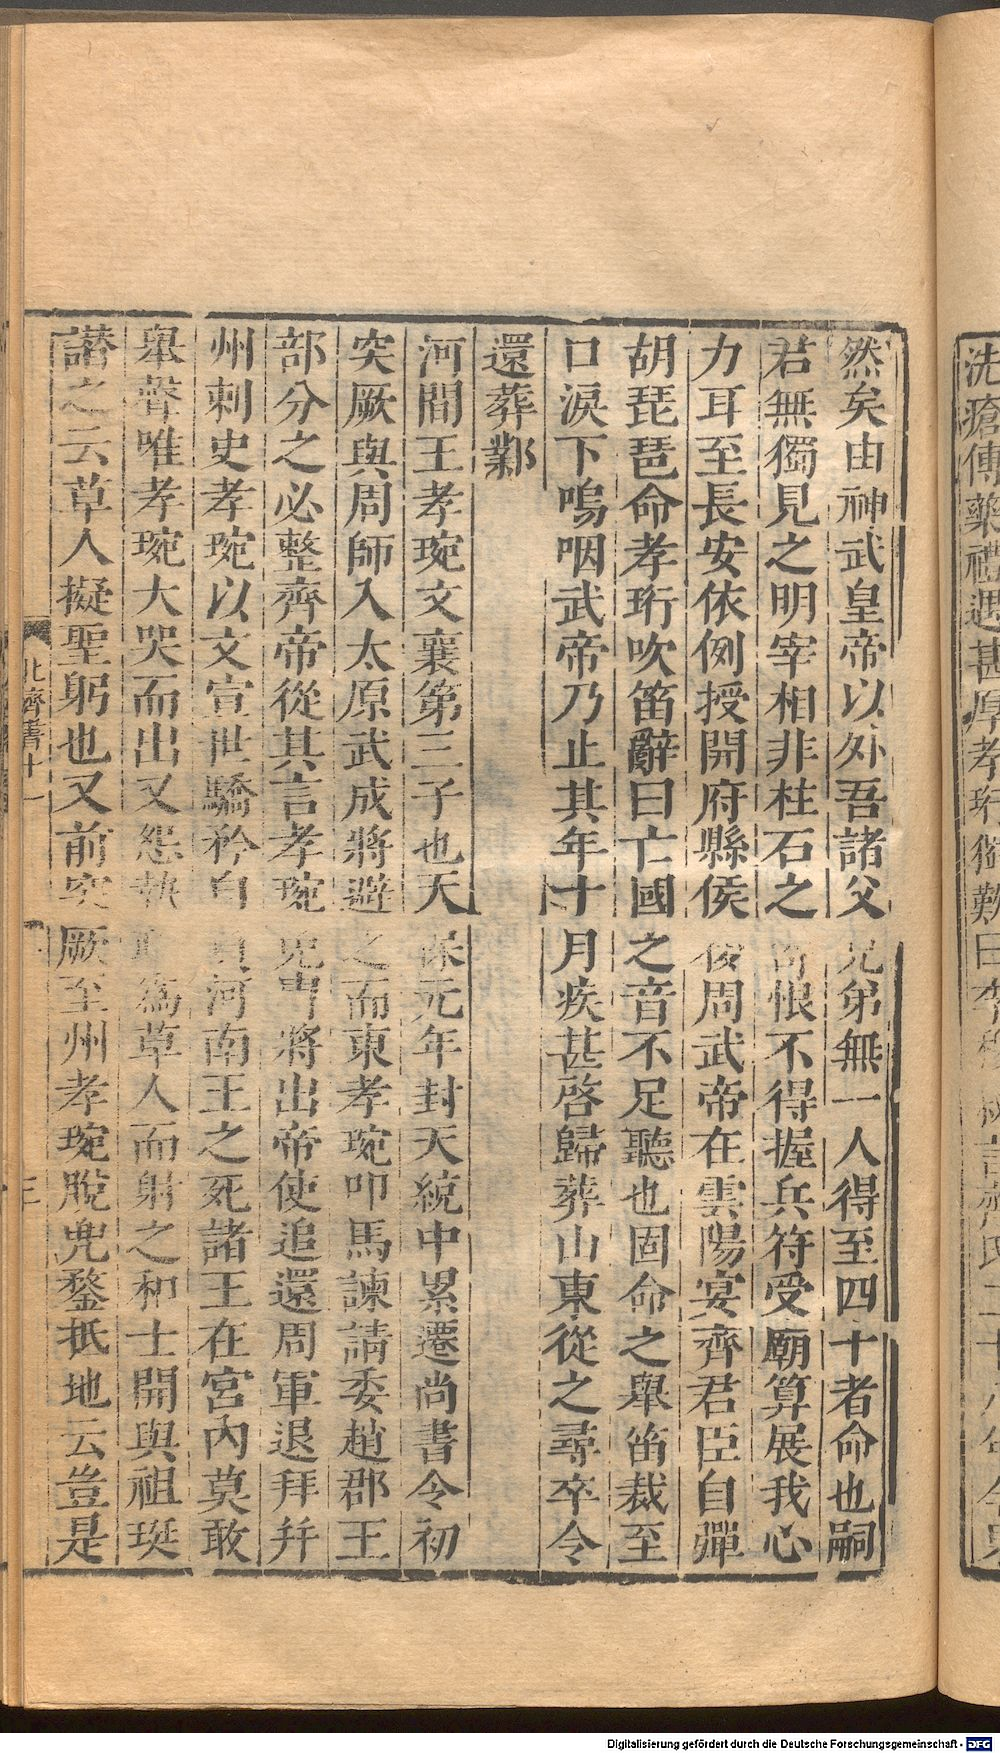 然矣由神武皇帝以外吾諸父兄弟無一人得至四十者命也嗣
君無獨見之明宰相非柱石之寄恨不得握兵符受廟算展我心
力耳至長安依例授開府縣侯後周武帝在雲陽宴齊君臣自彈
胡琵琶命孝珩吹笛辭曰亡國之音不足聽也固命之舉笛裁至
口淚下嗚咽武帝乃止其年十月疾甚啓歸葬山東從之尋卒令
還葬鄴
河間王孝琬文襄第三子也天保元年封天統中累遷尚書令初
突厥與周師入太原武成將避之而東孝琬叩馬諫請委趙郡王
部分之必整齊帝從其言孝琬免冑將出帝使追還周軍退拜幷
州刺史孝琬以文宣世驕矜自負河南王之死諸王在宮內莫敢
舉聲唯孝琬大哭而出又怨執政爲草人而射之和士開與祖珽
譖之云草人擬聖躬也又前突厥至州孝琬脫兜鍪抵地云豈是
北齊書十一
三
Digitalisierung gefördert durch die Deutsche Forschungsgemeinschaft - DFG